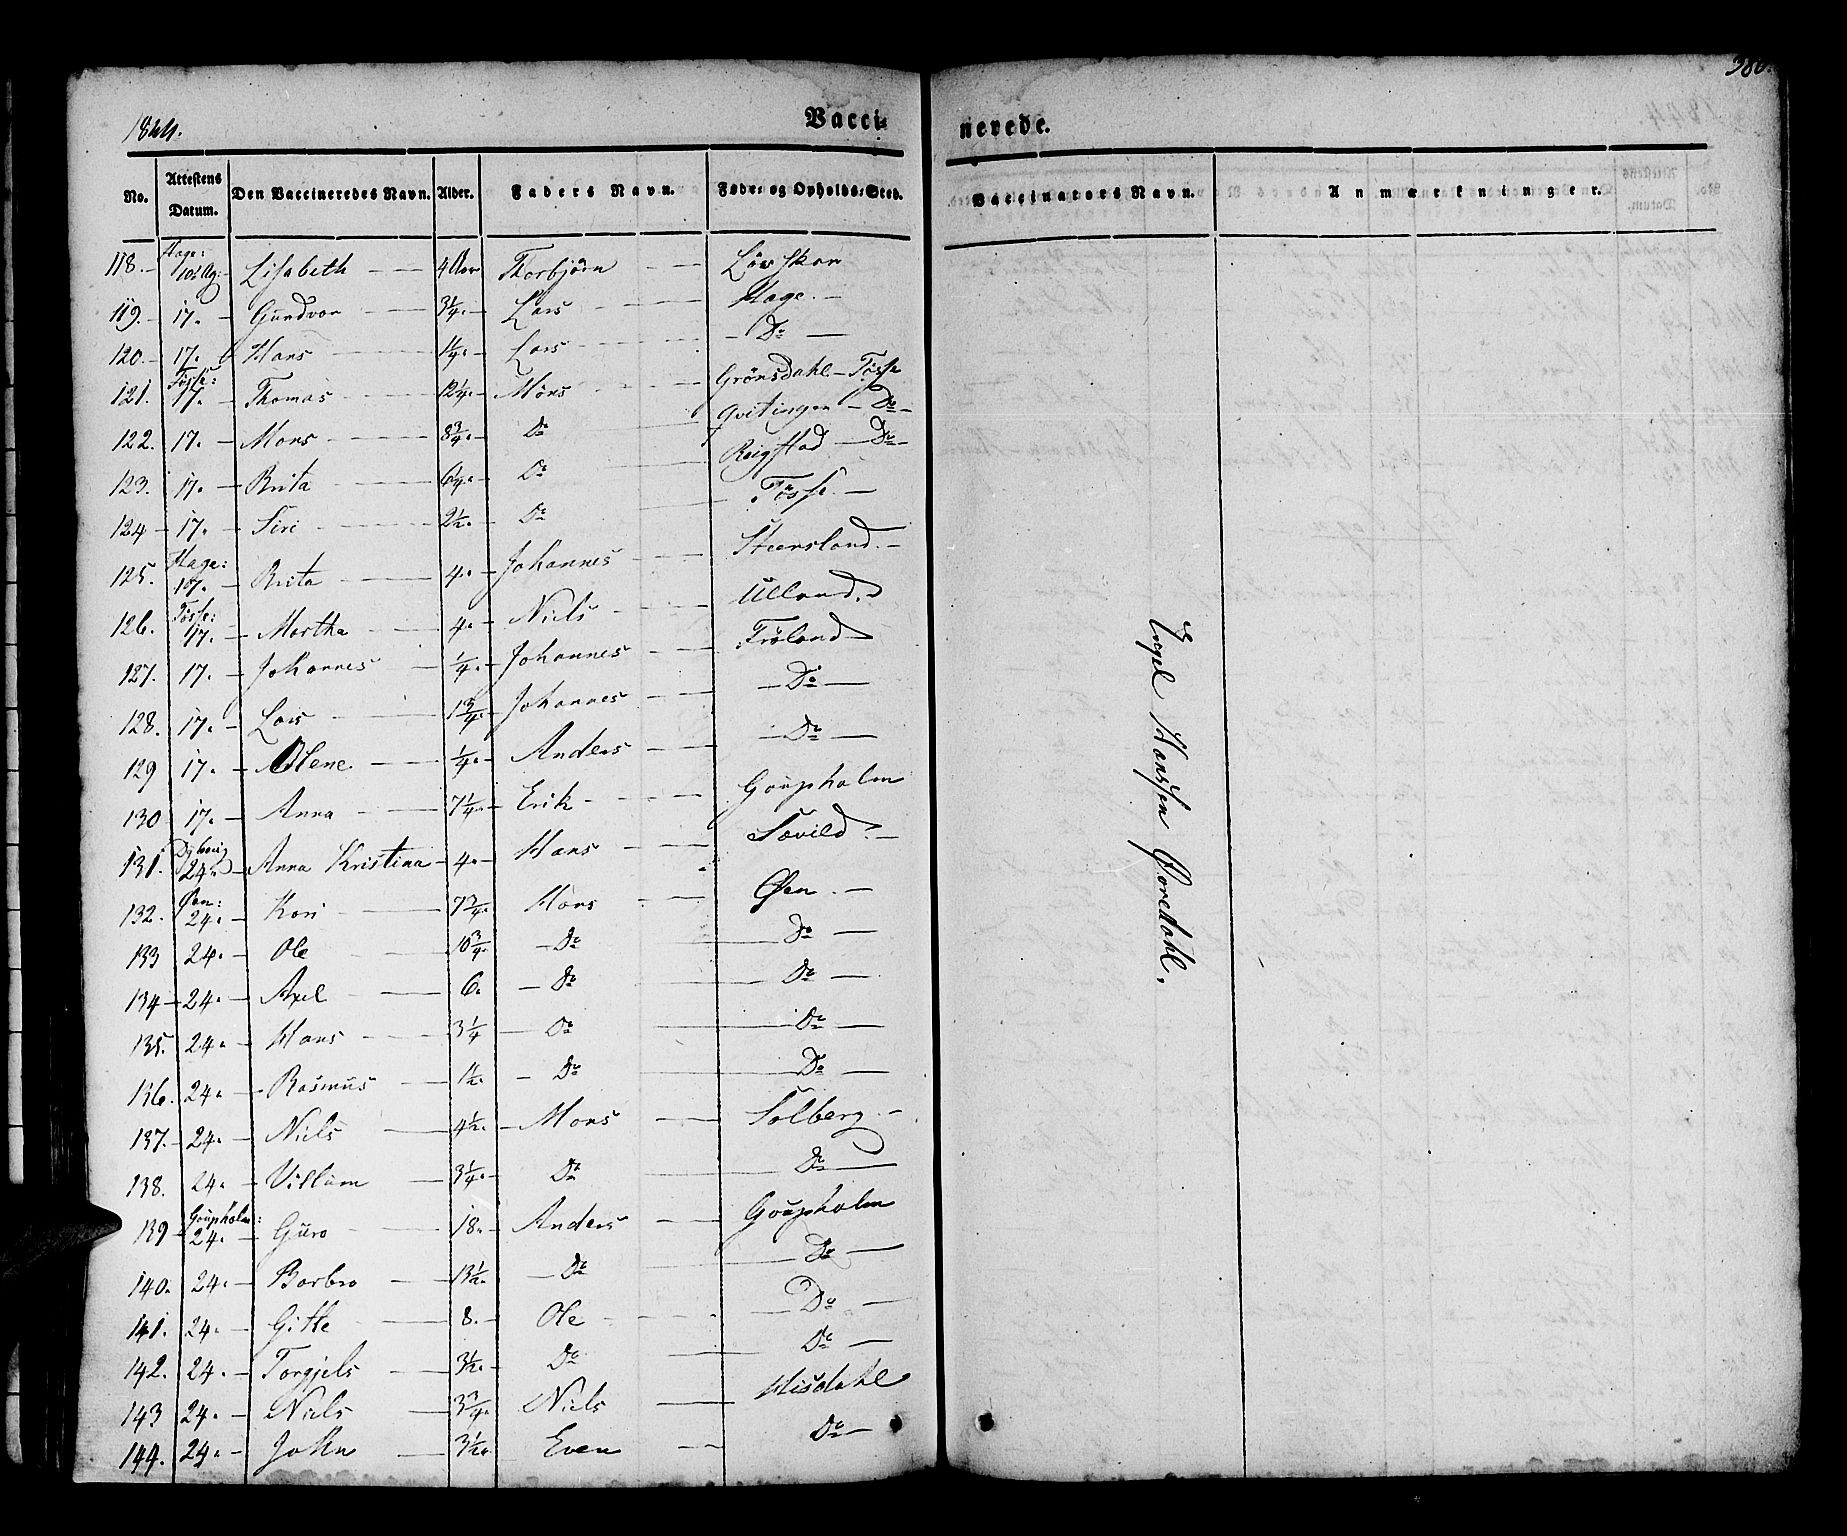 1844.
Vacci-
nerede.
380.
No. Attestens Datum. Den Vaccineredes Navn. Alder. Faders Navn. Føde- og Opholds-Sted. Vaccinators Navn. Anmærkninger.
118. Hage: 10de Ag: Lisabeth 4 Aar Thorbjörn
119. 17. Gundvor 3/4. Lars Hage.
120. 17. Hans 1 1/4. Lars Do
121. Tösse: 17. Thomas 12 1/4. Mons Grönsdahl - Tösse
122. 17. Mons 8 3/4. Do Qvitingen - Do
123. 17. Brita 6 1/4. Do Reigstad - Do
124 17. Siri 2 1/2. Do Tösse
125. Hage: 17. Brita 4. Johannes Steensland.
126. Tösse: 17. Martha 4. Niels Ulland.
127. 17. Johannes 1/4. Johannes Fröland
128. 17. Lars 1 3/4. Johannes Do
129 17. Olene 1/4. Anders Do
130 17. Anna 7 1/4. Erik Goupholm
131. 24. Anna Kristina 4. Hans Sævild.
132. Øen: 24. Kari 7 3/4. Hans Øen.
133 24. Ole 10 3/4. Do Do
134 24. Axel 6. Do Do
135. 24. Hans 3 1/4 Do Do
136. 24. Rasmus 1 1/2. Do Do
137. 24. Niels 4 1/2. Mons Solberg.
138. 24. Villum 3 1/4. Do Do
139 Goupholm: 24. Guro 18. Anders Goupholm
140. 24. Barbro 13 1/2. Do Do
141. 24. Gitle 8. Ole Do
142. 24. Torgjels 3 1/2. Do Do
143 24. Niels 3 3/4. Niels Hisdahl
144. 24. John 3 1/2. Even Do
Engel Hansen